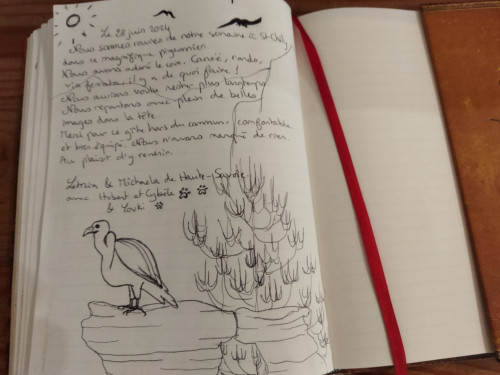 Le 28 juin 2024
Nous sommes ravies de notre semaine à St Chély
dans ce magnifique pigeonnier.
Nous avons adoré le coin. Canoë, rando,
via ferrata il y a de quoi faire !
Nous aurions voulu rester plus longtemps
Nous repartons avec plein de belles
images dans la tête.
Merci pour ce gîte hors du commun, confortable
et très équipé. Nous n'avons manqué de rien.
Au plaisir d'y revenir.
& Michaela de Haute-Savoie
avec Hubert et Cybèle
& Youki